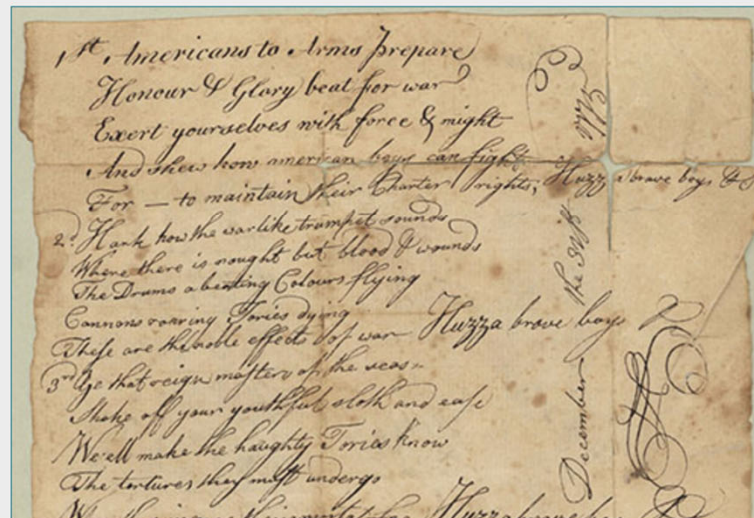 1st Americans to Arms prepare
Honour & Glory beat for war
Exert yourselves with force & might
And shew how american boys can fight
For — to maintain their Charter rights, Huzza brave boys &
2d. Hark how the warlike trumpet sounds
Where there is nought but blood & wounds
The Drums a beating Colours flying
Cannons roaring Tories dying
These are the noble effects of war Huzza brave boys
3rd Ye that reign masters of the seas
Shake off your youthful sloth and ease
We'ell make the haughty Tories know
The tortures they must undergo
Huzza brave boys
December the 31st